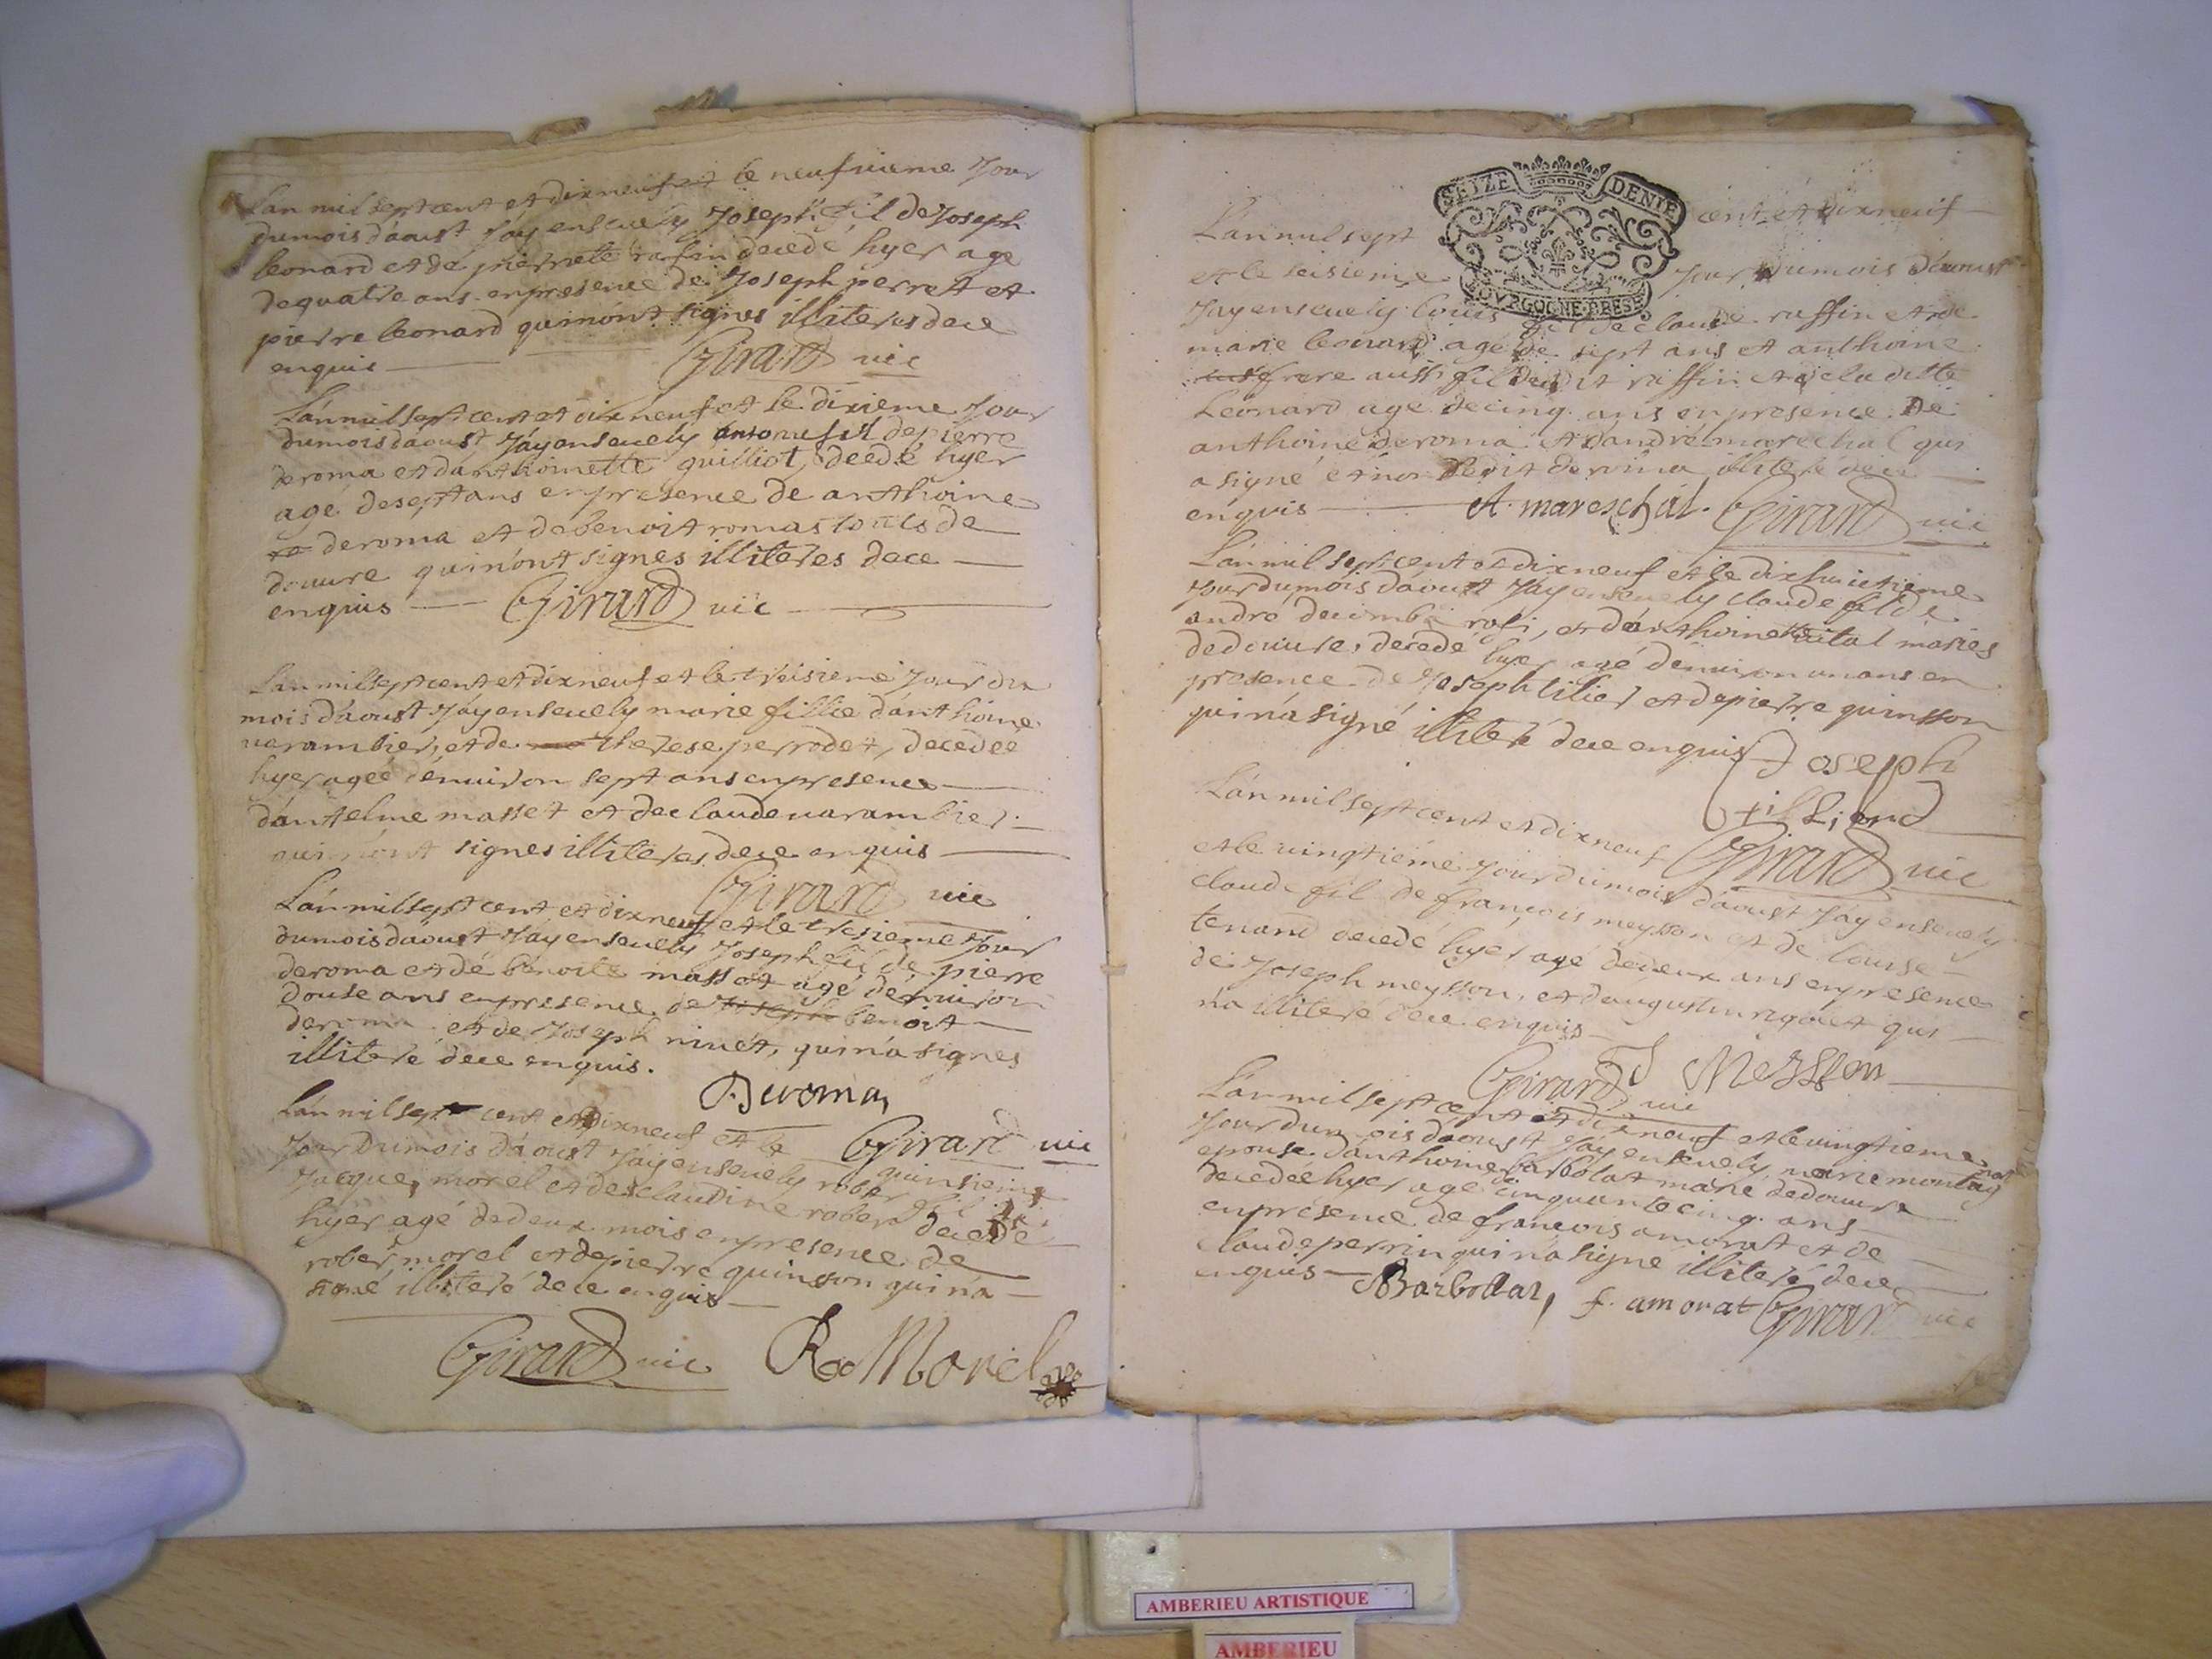 Lan mil sept cent et dixneuf et le neufvieme Jour
dumois d'aoust Jay ensevely Joseph fil de Joseph
leonard et de pierrette rafin decedé hyer age
dequatre ans enpresence de Joseph perret et
pierre leonard quinont signes illiteres dece
enquis
Girard vic
Lan mil sept cent et dixneuf et le dixieme Jour
dumois daoust Jay ensevely antoine fil depierre
deroma et danthoinette guilliot, decedé hyer
agé deseptans enpresence de anthoine
deroma et debenoit romas touts de
douvre quinont signes illiteres dece
enquis Girard vic
Lan mil sept cent et dixneuf et le treisieme Jour du
mois d'aoust Jay ensevely marie fillie danthoine
varambier, et de therese perrodet, decedeé
hyer ageé denviron sept ans enpresence
dantelme masset et de claude varambier
quinont signes illiteres dece enquis
Girard vic
Lan mil sept cent et dixneuf et le tresieme Jour
dumois daoust Jay ensevely Joseph fil de pierre
deroma et de benoite massot agé denviron
douse ans enpresence de Joseph benoit
deroma et de Joseph ninet, quina signes
illiteré dece enquis.
Deroma
Lan mil sept cent et dixneuf et le
Girard vic
quinsieme
Jour dumois d'aoust Jay ensevely rober fil de
Jacque morel et de claudine rober decedé
hyer agé dedeux mois enpresence de
rober morel et depierre quinsson quina
signé illiteré dece enquis
Girard vic R Morel
SEIZE DENIE
BOVRGOGNE BRESE
Lan mil sept cent et dixneuf
et le seisieme Jour dumois d'aoust
Jay ensevely louis fil de claude raffin et de
marie leonard agé de sept ans et anthoine
frere aussi fil dudit raffin et de la ditte
Leonard age decinq ans enpresence de
anthoine deroma et dandré marechal qui
a signé et non ledit deroma illiteré dece
enquis A. mareschal. Girard vic
Lan mil sept cent et dixneuf et le dixhuictieme
Jour dumois daoust Jay ensevely claude fil de
andré decombe, et danthoinette vital maries
dedouvre, decedé hyer agé denviron un ans en
presence de Joseph tilier et depierre quinsson
quina signé illiteré dece enquis Joseph
tilliend
Lan mil sept cent et dixneuf Girard vic
et le vingtieme Jour dumois daoust Jay ensevely
claude fil de françois meysson et de louise
tenand decedé hyer agé dedeux ans enpresence
de Joseph meysson, et daugustin rigolet qui
na illiteré dece enquis
Girard vic J Meysson
Lan mil sept cent et dixneuf et le vingtieme
Jour dumois daoust Jay ensevely marie montag
epouse danthoine barbolat marié dedouvre
decedeé hyer agé cinquante cinq ans
enpresence de françois amorat et de
claude perrin quina signé illiteré dece
enquis Barbollat, f. amorat Girard vic
AMBERIEU ARTISTIQUE
AMBERIEU